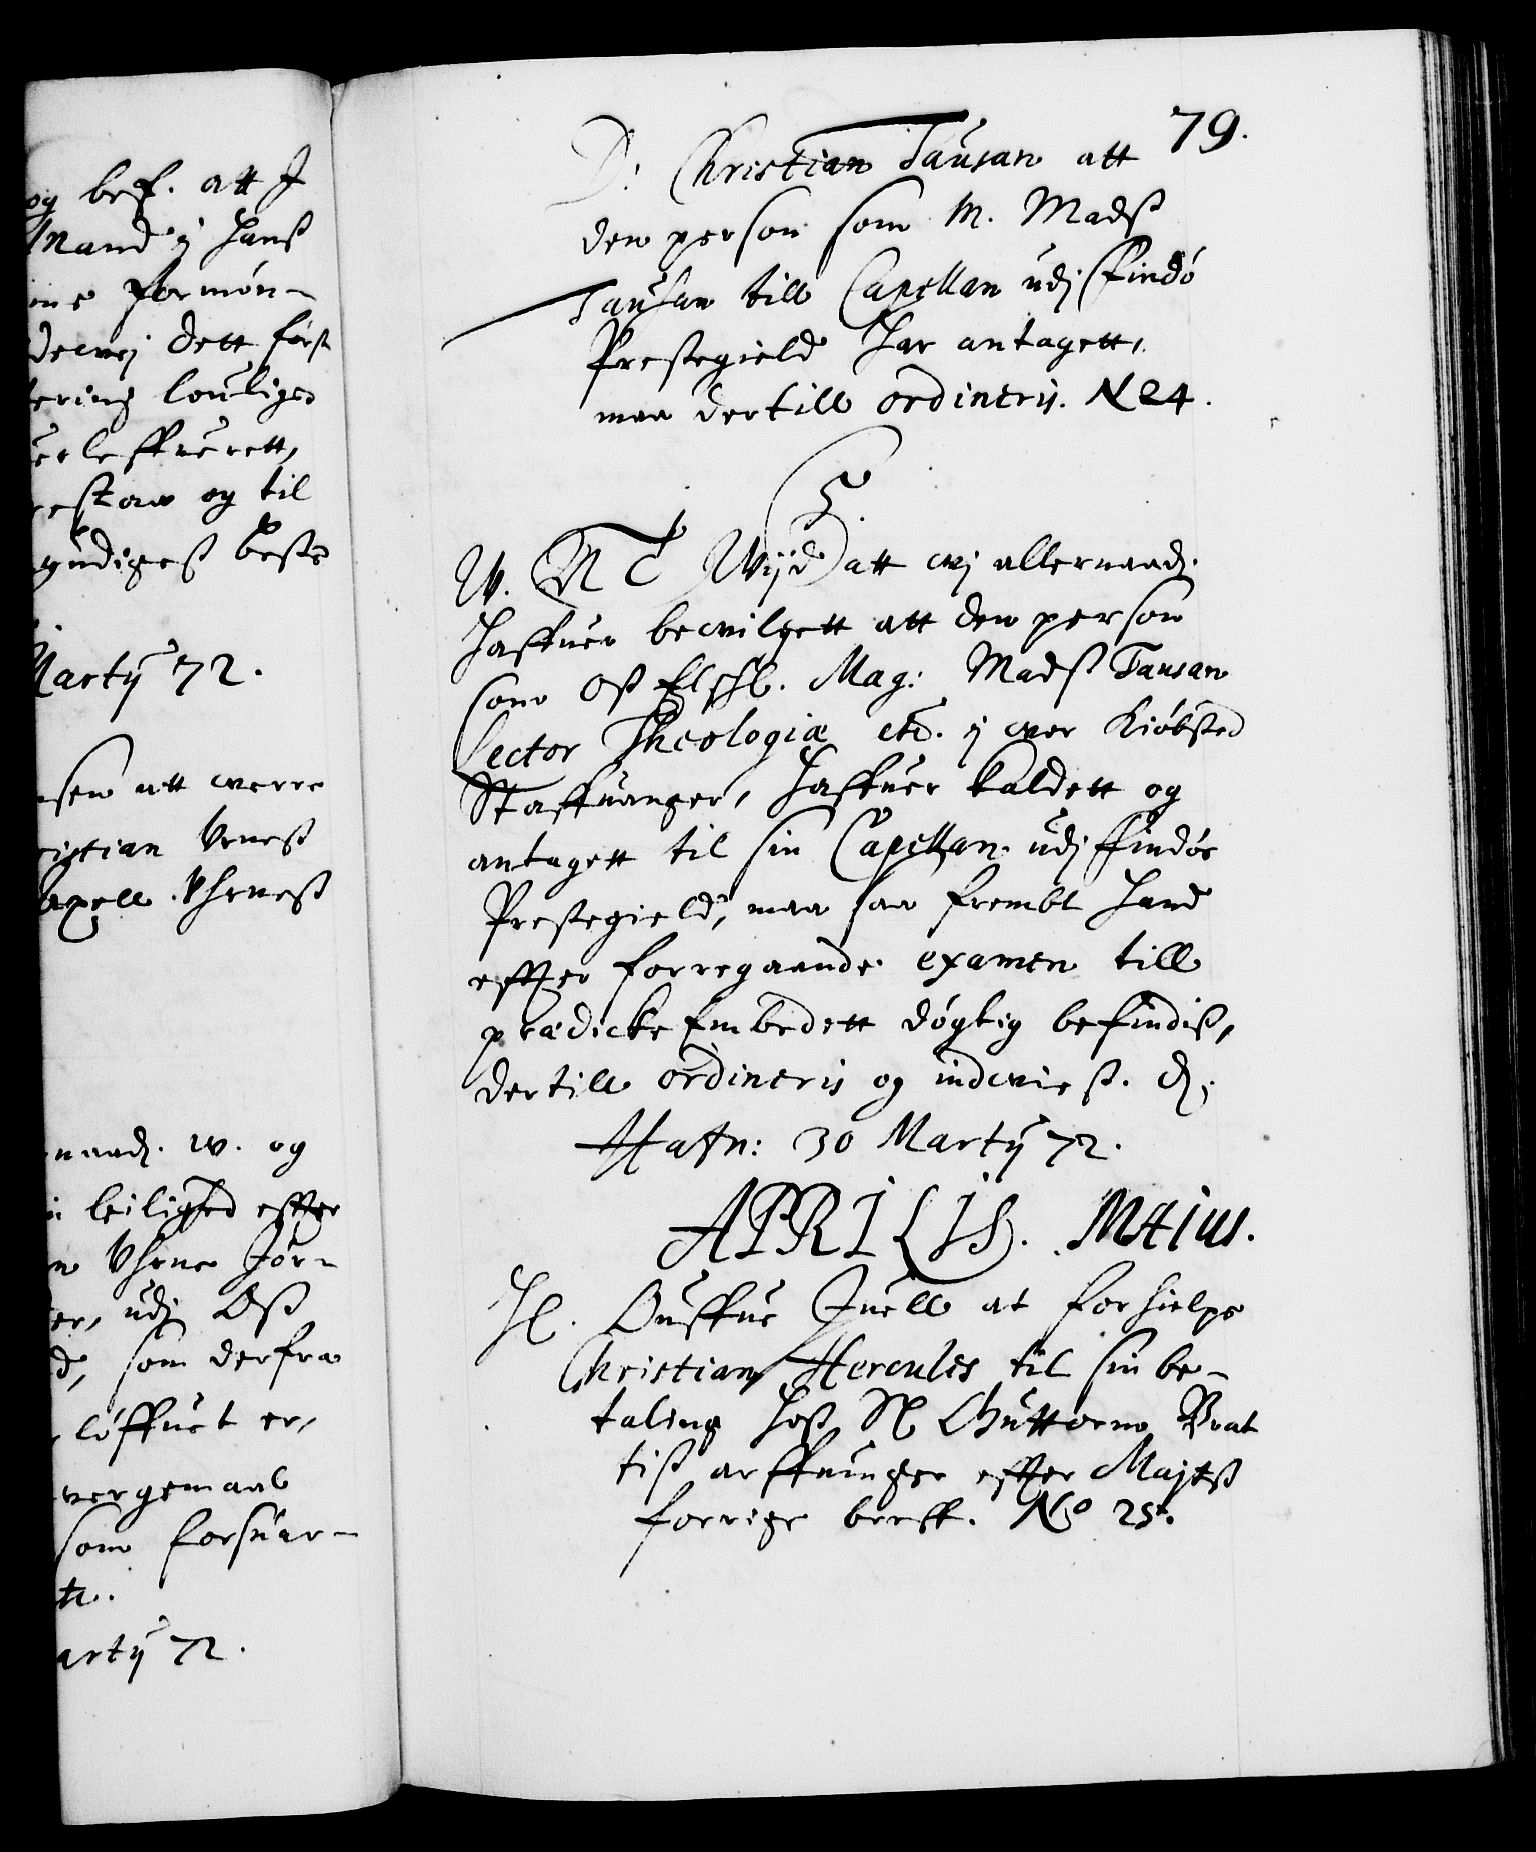 og bef. att I
Mand i Hans
ine formøn-
decvej dett først
tering louliges
erleffuerett,
restow og til
gudigeß beste
Martij 72.
sen att werre
ristian Vrneß
apell Vhrneß
naadj. w. og
leilighed effter
n Vhrne Jør-
er, udj Oß
d, som derfra
løffuet er,
vergemaal
som forsuar-
te.
artij 72.
79.
D: Christian Tausan att
den person som M. Madß
Tausan till Capellan udj Findø
Prestegield har antagett,
maa dertill ordineris. N 24.
5.
W. N C Wijd att wj allernaadj.
haffuer bewilgett att den person
som Oß Elschl. Mag: Madß Tausan
Lector Theologiæ etc. j wor Kiöbsted
Staffuanger, haffuer kaldett og
antagett til sin Capellan udj Findøe
Prestegield, maa saa frembt hand
effter forregaaende examen till
prædicke Embedett døgtig befindiß,
dertill ordineris og indwieß. dj.
Hafn: 30 Martij 72.
APRILIS. MAius.
Hl. Ouffue Juell at forhielpe
Christian Hercules til sin be-
taling hoß N Guttorm Brat
tiß arffuinger effter Majtß
forrige breff. No 25.